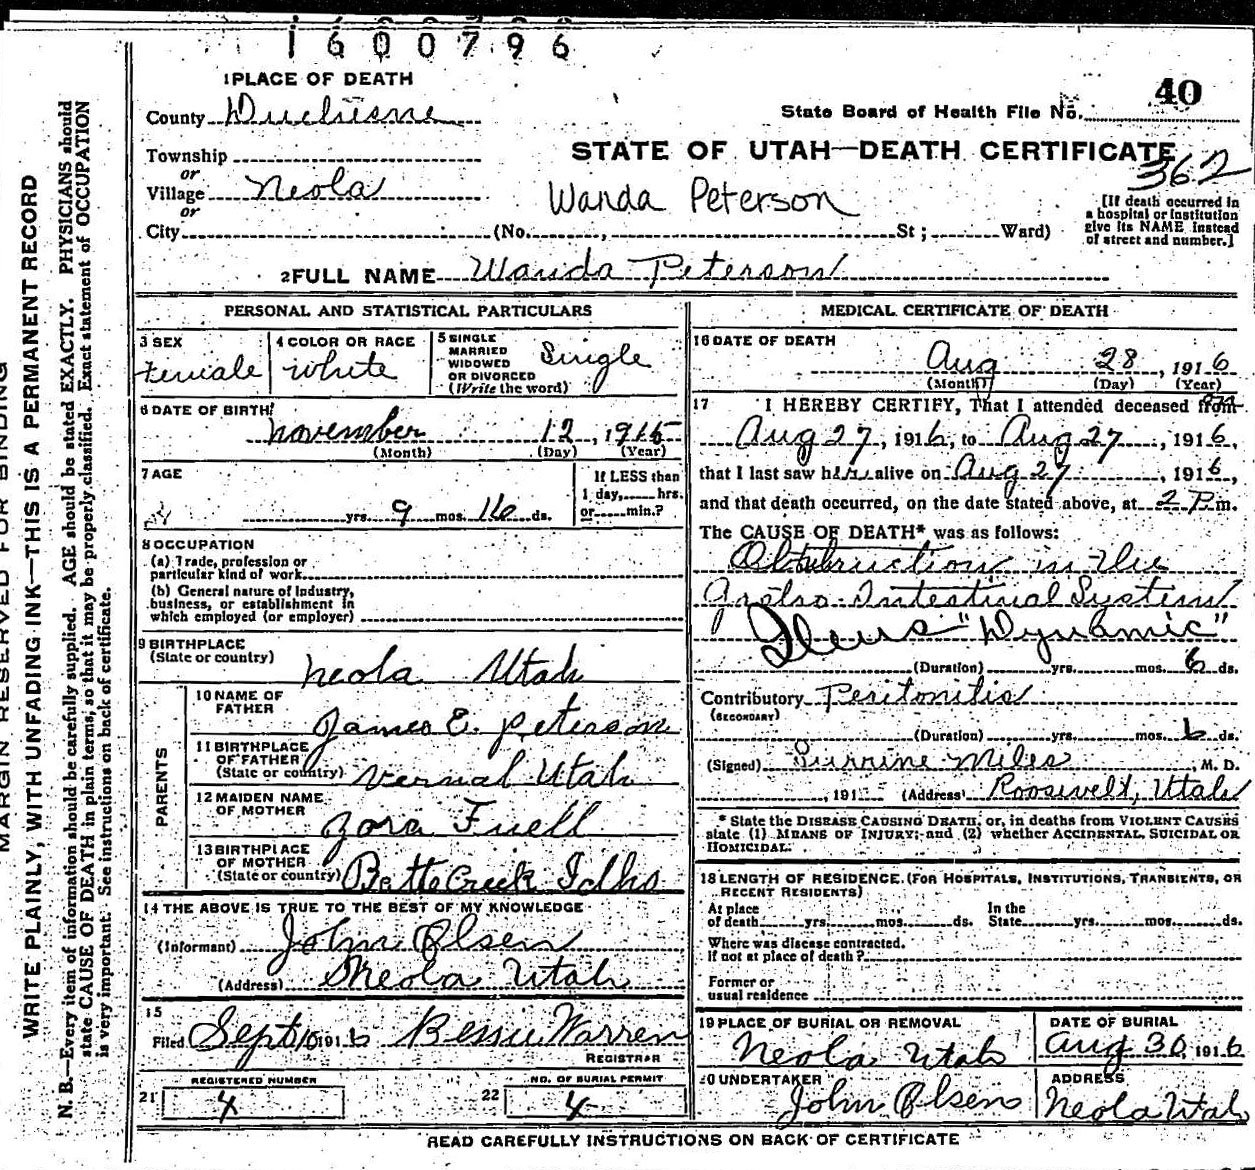 1600796
1 PLACE OF DEATH
40
County Duchesne
State Board of Health File No.
Township
STATE OF UTAH—DEATH CERTIFICATE
or
362
Village Neola
Wanda Peterson
or
[If death occurred in
a hospital or institution
give its NAME instead
of street and number.]
City (No. , St ; Ward)
2 FULL NAME Wanda Peterson
PERSONAL AND STATISTICAL PARTICULARS
3 SEX
Female
4 COLOR OR RACE
White
5 SINGLE
MARRIED
WIDOWED
OR DIVORCED
(Write the word)
Single
6 DATE OF BIRTH
November 12, 1915
(Month) (Day) (Year)
7 AGE
yrs. 9 mos. 16 ds.
If LESS than
1 day, hrs.
or min.?
8 OCCUPATION
(a) Trade, profession or
particular kind of work
(b) General nature of Industry,
business, or establishment in
which employed (or employer)
9 BIRTHPLACE
(State or country)
Neola Utah
PARENTS
10 NAME OF
FATHER
James E. Peterson
11 BIRTHPLACE
OF FATHER
(State or country)
Vernal Utah
12 MAIDEN NAME
OF MOTHER
Zora Fuell
13 BIRTHPLACE
OF MOTHER
(State or country)
Creek Idho
14 THE ABOVE IS TRUE TO THE BEST OF MY KNOWLEDGE
(Informant) John Olsen
(Address) Neola Utah
15
Filed Sept 10 1916 Bessie Warren
REGISTRAR
REGISTERED NUMBER
21 4
NO. OF BURIAL PERMIT
22 4
MEDICAL CERTIFICATE OF DEATH
16 DATE OF DEATH
Aug 28, 1916
(Month) (Day) (Year)
17 I HEREBY CERTIFY, That I attended deceased from
Aug 27, 1916, to Aug 27, 1916,
that I last saw her alive on Aug 27, 1916,
and that death occurred, on the date stated above, at 2 P. m.
The CAUSE OF DEATH* was as follows:
Obstruction in the
Gastro-Intestinal System
Ileus "Dynamic"
(Duration) yrs. mos. 6 ds.
Contributory Peritonitis
(SECONDARY)
(Duration) yrs. mos. 6 ds.
(Signed) Miles, M. D.
, 191 (Address) Roosevelt, Utah
* State the DISEASE CAUSING DEATH, or, in deaths from VIOLENT CAUSES
state (1) MEANS OF INJURY; and (2) whether ACCIDENTAL, SUICIDAL OR
HOMICIDAL.
18 LENGTH OF RESIDENCE. (FOR HOSPITALS, INSTITUTIONS, TRANSIENTS, OR
RECENT RESIDENTS)
At place
of death yrs. mos. ds.
In the
State yrs. mos. ds.
Where was disease contracted.
If not at place of death?
Former or
usual residence
19 PLACE OF BURIAL OR REMOVAL
Neola Utah
DATE OF BURIAL
Aug 30, 1916
20 UNDERTAKER
John Olsen
ADDRESS
Neola Utah
READ CAREFULLY INSTRUCTIONS ON BACK OF CERTIFICATE
MARGIN RESERVED FOR BINDING
WRITE PLAINLY, WITH UNFADING INK—THIS IS A PERMANENT RECORD
N. B.—Every item of information should be carefully supplied. AGE should be stated EXACTLY. PHYSICIANS should
state CAUSE OF DEATH in plain terms, so that it may be properly classified. Exact statement of OCCUPATION
is very important. See instructions on back of certificate.